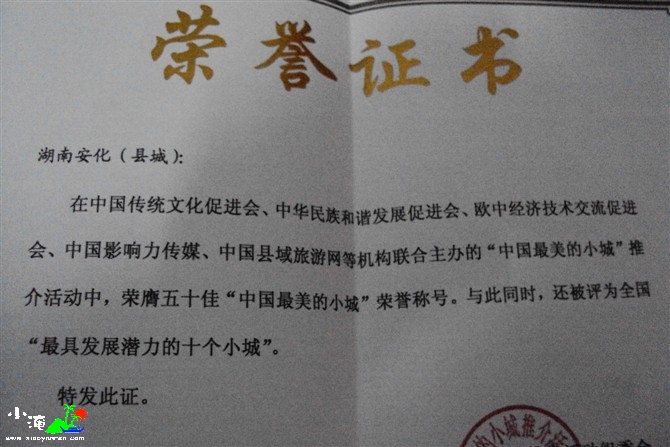 荣誉证书
湖南安化（县城）：
在中国传统文化促进会、中华民族和谐发展促进会、欧中经济技术交流促进
会、中国影响力传媒、中国县域旅游网等机构联合主办的“中国最美的小城”推
介活动中，荣膺五十佳“中国最美的小城”荣誉称号。与此同时，还被评为全国
“最具发展潜力的十个小城”。
特发此证。
的小城推介
组委会
小淹
www.xiaoyanren.com